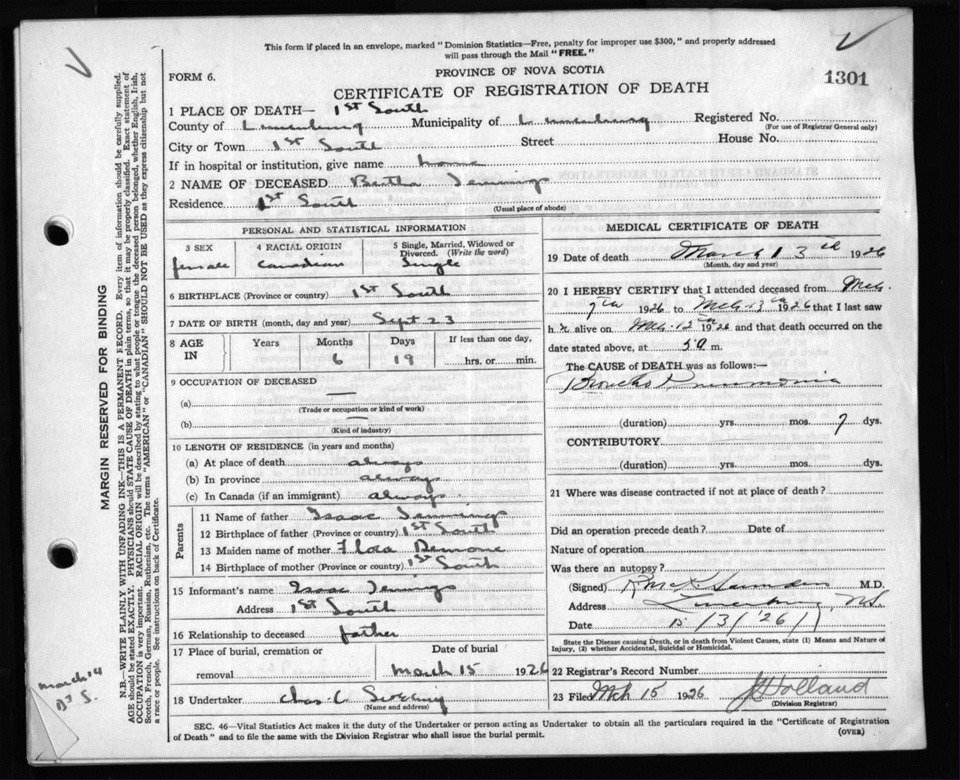 This form if placed in an envelope, marked "Dominion Statistics—Free, penalty for improper use $300," and properly addressed
will pass through the Mail "FREE."
PROVINCE OF NOVA SCOTIA
FORM 6.
1301
CERTIFICATE OF REGISTRATION OF DEATH
1 PLACE OF DEATH— 1st South
County of Lunenburg Municipality of Lunenburg Registered No.
(For use of Registrar General only)
City or Town 1st South Street House No.
If in hospital or institution, give name home
2 NAME OF DECEASED Bertha Jennings
Residence 1st South
(Usual place of abode)
PERSONAL AND STATISTICAL INFORMATION
3 SEX
female
4 RACIAL ORIGIN
Canadian
5 Single, Married, Widowed or
Divorced. (Write the word)
Single
6 BIRTHPLACE (Province or country) 1st South
7 DATE OF BIRTH (month, day and year) Sept 23
8 AGE
IN
Years
Months
6
Days
19
If less than one day,
hrs. or min.
9 OCCUPATION OF DECEASED
(a)
(Trade or occupation or kind of work)
(b)
(Kind of industry)
10 LENGTH OF RESIDENCE (in years and months)
(a) At place of death always
(b) In province always
(c) In Canada (if an immigrant) always
Parents
11 Name of father Isaac Jennings
12 Birthplace of father (Province or country) 1st South
13 Maiden name of mother Flora Demone
14 Birthplace of mother (Province or country) 1st South
15 Informant's name Isaac Jennings
Address 1st South
16 Relationship to deceased father
17 Place of burial, cremation or
removal
Date of burial
March 15 1926
18 Undertaker Chas C
(Name and address)
MEDICAL CERTIFICATE OF DEATH
19 Date of death March 13th 1926
(Month, day and year)
20 I HEREBY CERTIFY that I attended deceased from Mch.
7th 1926 to Mch. 13th 1926 that I last saw
h alive on Mch. 12th 1926 and that death occurred on the
date stated above, at 5 a m.
The CAUSE of DEATH was as follows:—
Broncho Pneumonia
(duration) yrs. mos. 7 dys.
CONTRIBUTORY
(duration) yrs. mos. dys.
21 Where was disease contracted if not at place of death?
Did an operation precede death? Date of
Nature of operation
Was there an autopsy?
(Signed) M.D.
Address N.S.
Date 15/3/26
State the Disease causing Death, or in death from Violent Causes, state (1) Means and Nature of
Injury, (2) whether Accidental, Suicidal or Homicidal.
22 Registrar's Record Number
23 Filed Mch 15 1926 Holland
(Division Registrar)
SEC. 46—Vital Statistics Act makes it the duty of the Undertaker or person acting as Undertaker to obtain all the particulars required in the "Certificate of Registration
of Death" and to file the same with the Division Registrar who shall issue the burial permit.
(OVER)
MARGIN RESERVED FOR BINDING
N.B.—WRITE PLAINLY WITH UNFADING INK—THIS IS A PERMANENT RECORD. Every item of information should be carefully supplied.
AGE should be stated EXACTLY. PHYSICIANS should STATE CAUSE OF DEATH in plain terms, so that it may be properly classified. Exact statement of
OCCUPATION is very important. RACIAL ORIGIN will be described by stating to what people or tongue the deceased person belonged, whether English, Irish,
Scotch, French, German, Russian, Ruthenian, etc. The terms "AMERICAN" or "CANADIAN" SHOULD NOT BE USED as they express citizenship but not
a race or people. See instructions on back of Certificate.
March 14